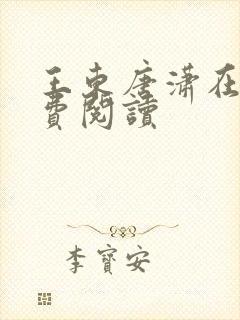 王東唐潇在
費閱讀
李寶安